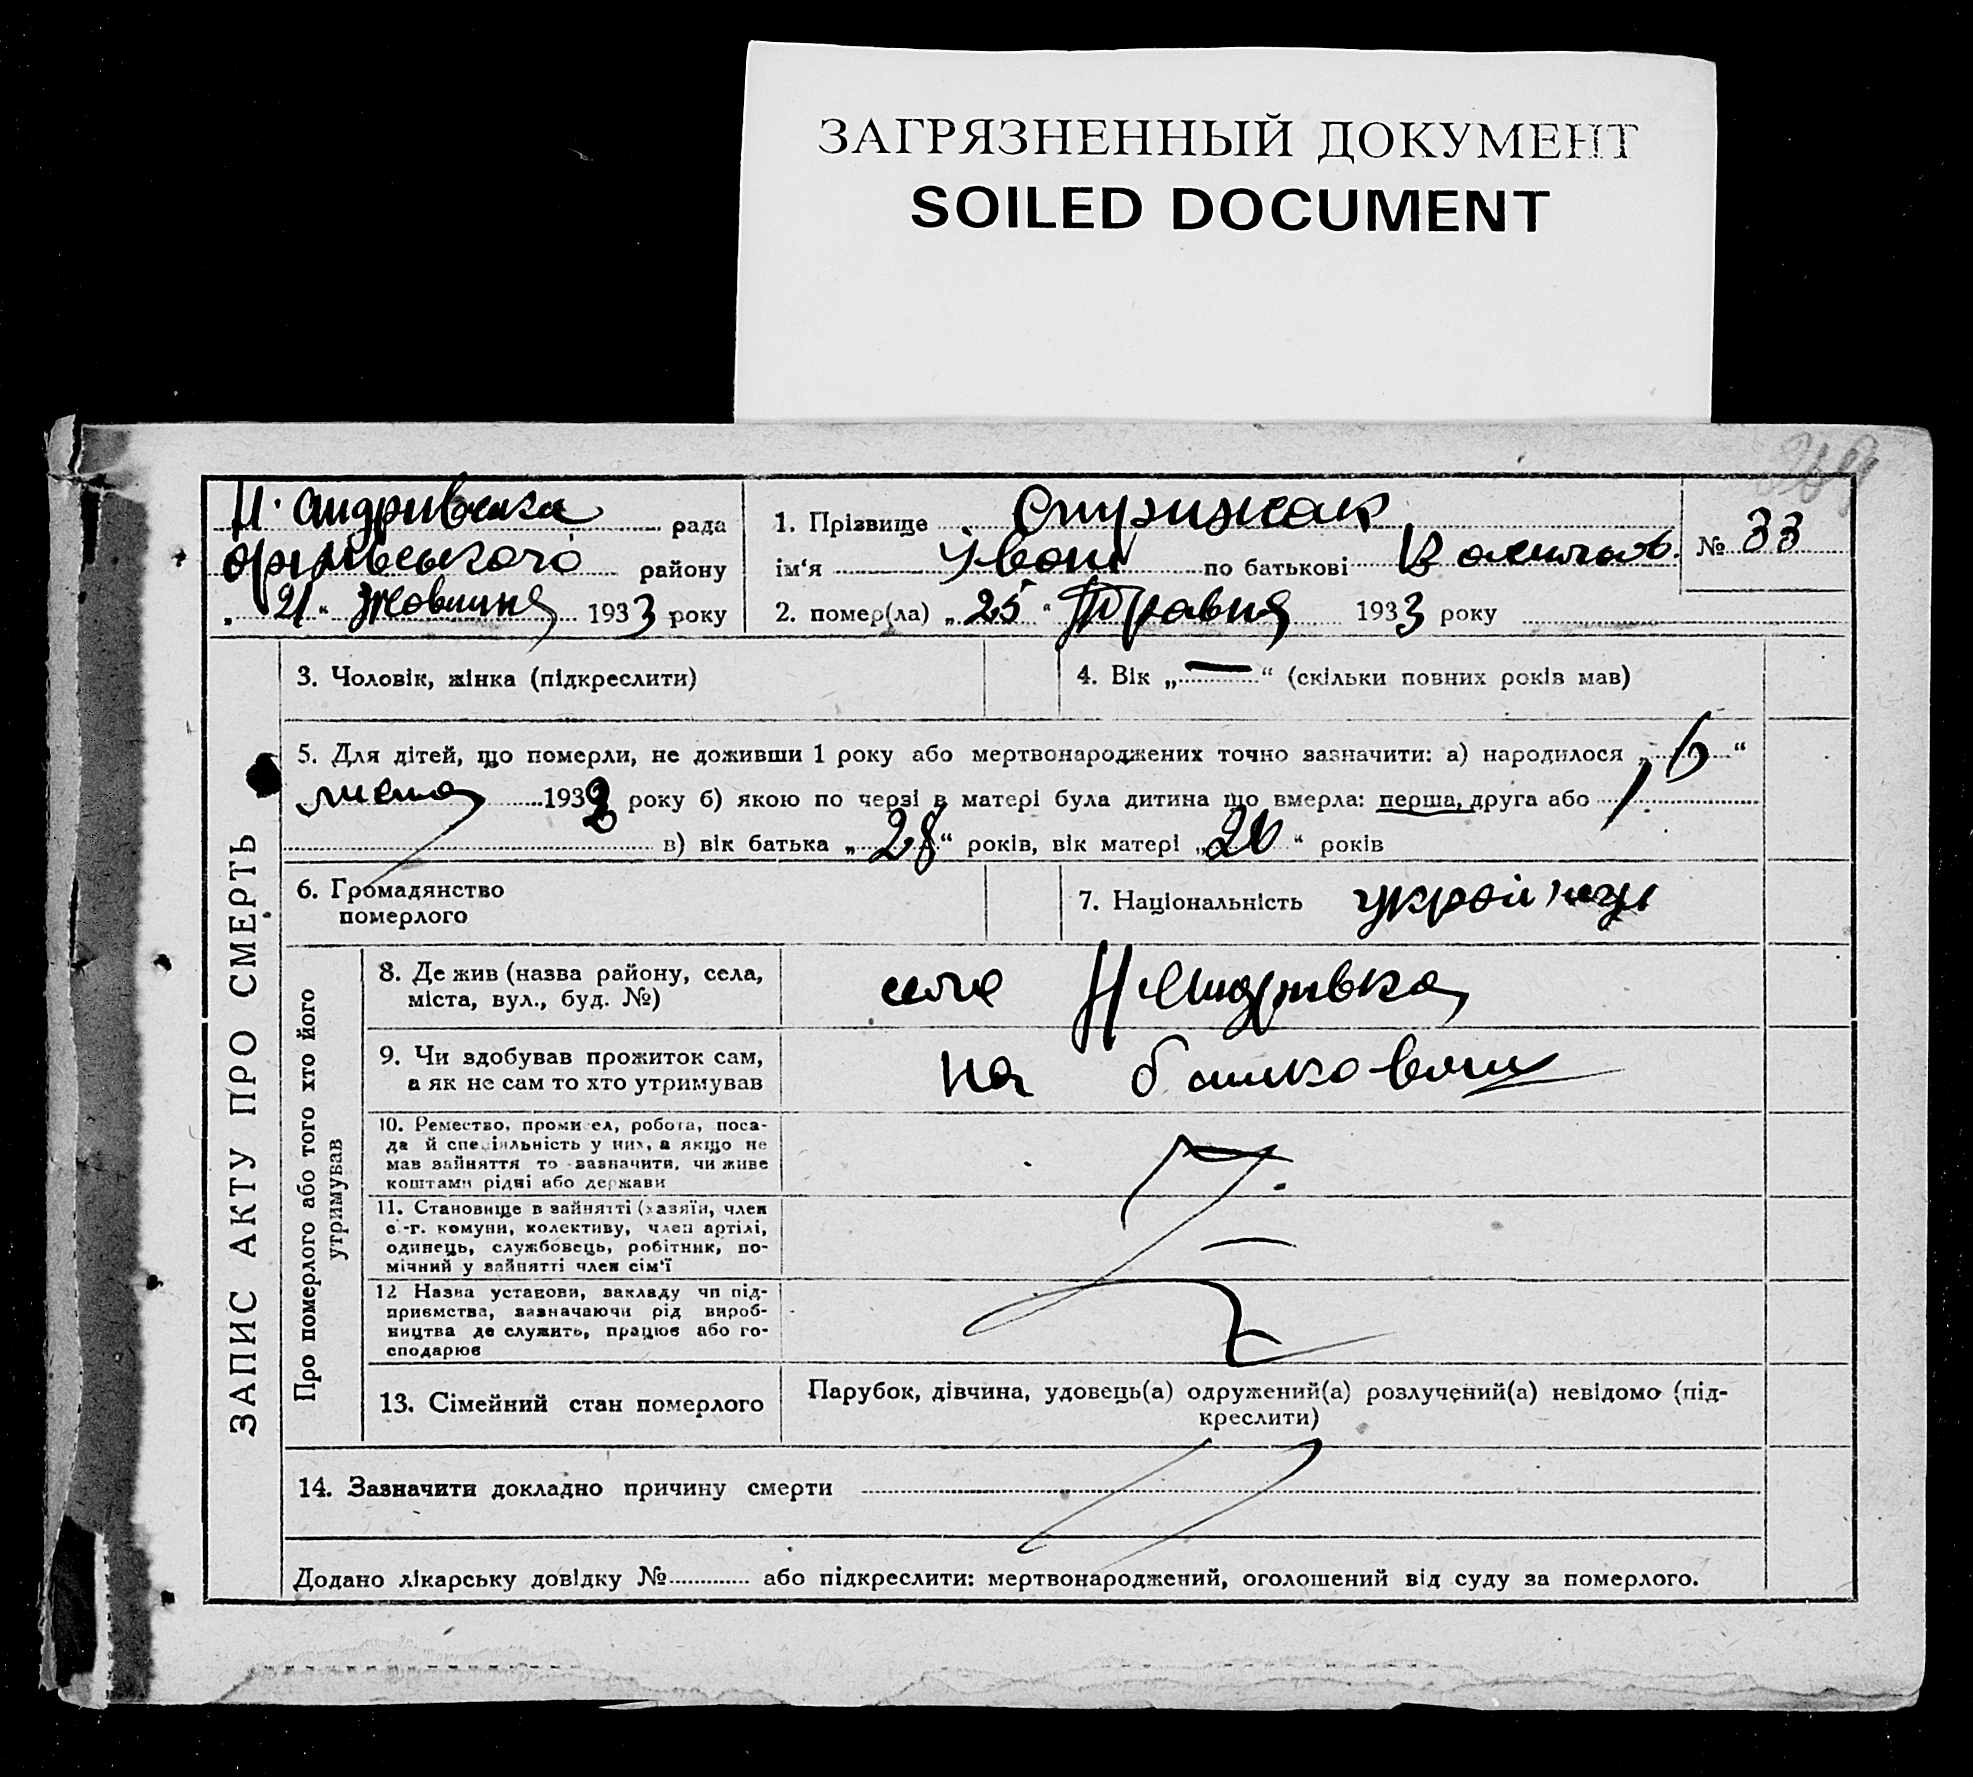 ЗАГРЯЗНЕННЫЙ ДОКУМЕНТ
SOILED DOCUMENT
Н. Андривська рада
району
„21“ Жовтня 1933 року
1. Прізвище Стрижак
ім‘я Іван по батькові Василов.
№ 33
2. помер(ла) „25“ Травня 1933 року
ЗАПИС АКТУ ПРО СМЕРТЬ
3. Чоловік, жінка (підкреслити)
4. Вік „—“ (скільки повних років мав)
5. Для дітей, що померли, не доживши 1 року або мертвонароджених точно зазначити: а) народилося „ “
1932 року б) якою по черзі в матері була дитина що вмерла: перша, друга або
в) вік батька „28“ років, вік матері „ “ років
6. Громадянство
померлого
7. Національність
Про померлого або того хто його
утримував
8. Де жив (назва району, села,
міста, вул., буд. №)
село Н Андривка
9. Чи здобував прожиток сам,
а як не сам то хто утримував
на батькових
10. Ремество, промисел, робота, поса-
да й спеціяльність у них, а якщо не
мав зайняття то зазначити, чи живе
коштами рідні або держави
11. Становище в зайнятті (хазяїн, член
с.-г. комуни, колективу, член артілі,
одинець, службовець, робітник, по-
мічний у зайнятті член сім‘ї
12 Назва установи, закладу чи під-
приємства, зазначаючи рід вироб-
ництва де служить, працює або го-
сподарює
13. Сімейний стан померлого
Парубок, дівчина, удовець(а) одружений(а) розлучений(а) невідомо (під-
креслити)
14. Зазначити докладно причину смерти
Додано лікарську довідку № або підкреслити: мертвонароджений, оголошений від суду за померлого.